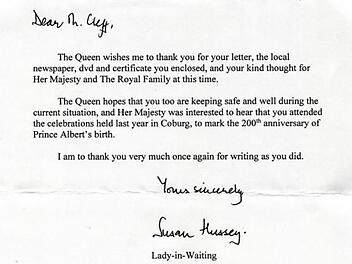 Dear Mr. Clegg,
The Queen wishes me to thank you for your letter, the local
newspaper, dvd and certificate you enclosed, and your kind thought for
Her Majesty and The Royal Family at this time.
The Queen hopes that you too are keeping safe and well during the
current situation, and Her Majesty was interested to hear that you attended
the celebrations held last year in Coburg, to mark the 200th anniversary of
Prince Albert's birth.
I am to thank you very much once again for writing as you did.
Yours sincerely
Susan Hussey.
Lady-in-Waiting